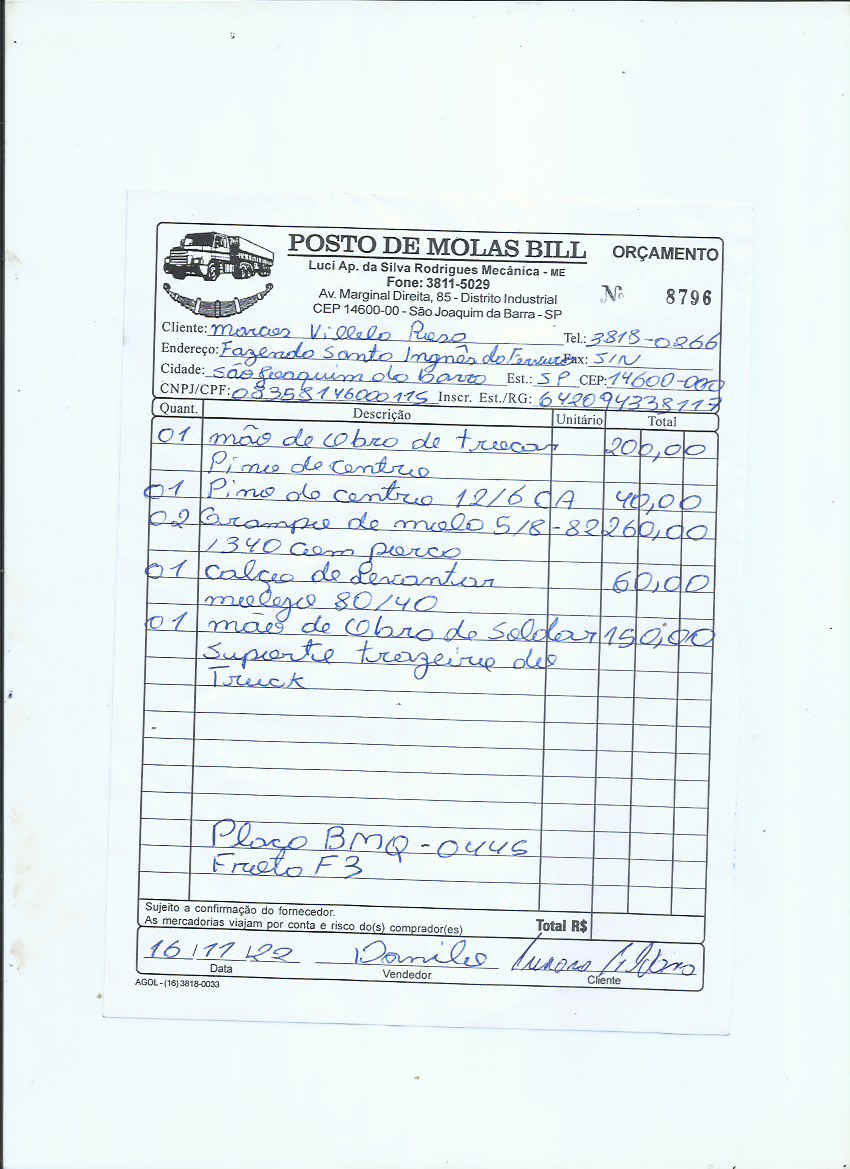 POSTO DE MOLAS BILL
ORÇAMENTO
Luci Ap. da Silva Rodrigues Mecânica - ME
Fone: 3811-5029
Av. Marginal Direita, 85 - Distrito Industrial
CEP 14600-00 - São Joaquim da Barra - SP
Nº 8796
Cliente: Moraes Villela Tel.: 3818-0266
Endereço: Fazenda Santo Ingnês do Fax: S/N
Cidade: São Joaquim da Barra Est.: SP CEP: 14600-000
CNPJ/CPF: 08358146000115 Inscr. Est./RG: 642094338117
Quant. Descrição Unitário Total
01 mão de obra de trocar 200,00
Pino de centro
01 Pino de centro 12/6 CA 40,00
02 Grampo de molo 5/8-82 260,00
1340 com porca
01 Calço de Levantar 60,00
molejo 80/40
01 mão de obra de Soldar 150,00
Suporte trazeiro do
Truck
Placa BMQ-0445
Frota F3
Sujeito a confirmação do fornecedor.
As mercadorias viajam por conta e risco do(s) comprador(es)
Total R$
16/11/22 Danilo
Data Vendedor Cliente
AGOL - (16) 3818-0033